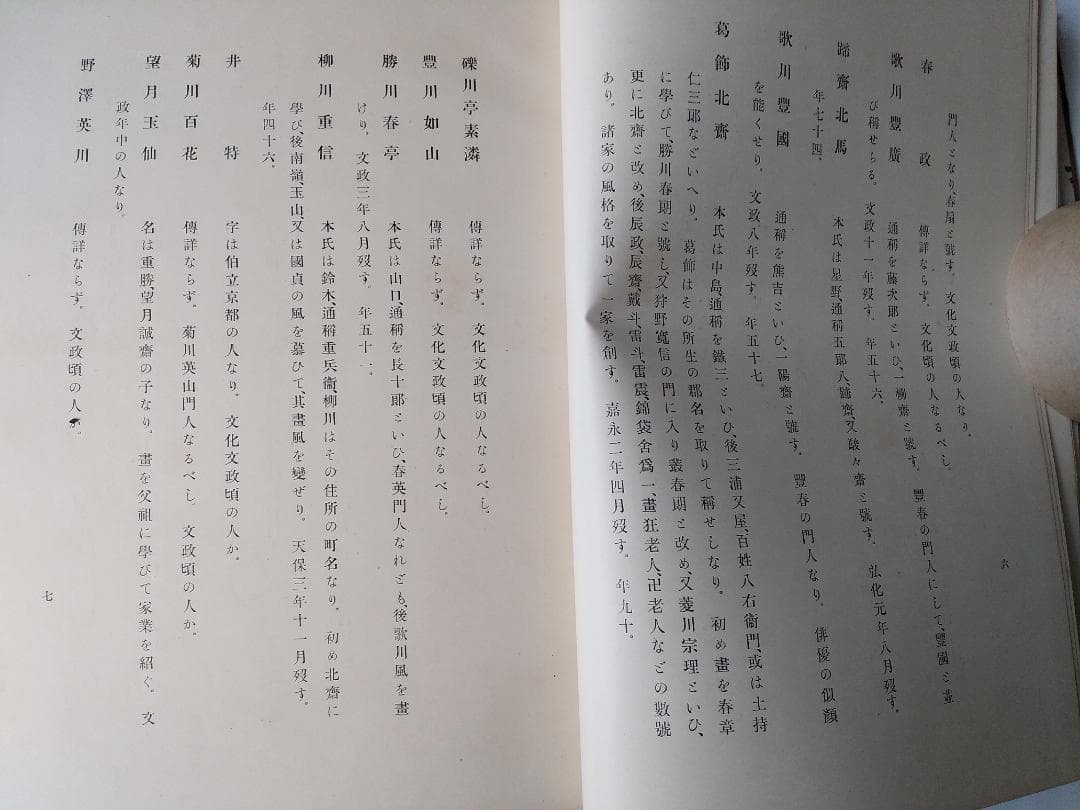 門人となり、春扇と號す。文化文政頃の人なり。
春政　傳詳ならず。文化頃の人なるべし。
歌川豐廣　通稱を藤次郎といひ、一柳齋と號す。豐春の門人にして、豐國と並
び稱せらる。文政十一年歿す。年五十六。
蹄齋北馬　本氏は星野、通稱五郎八、蹄齋、又駿々齋と號す。弘化元年八月歿す。
年七十四。
歌川豐國　通稱を熊吉といひ、一陽齋と號す。豐春の門人なり。俳優の似顔
を能くせり。文政八年歿す。年五十七。
葛飾北齋　本氏は中島、通稱を鐵三といひ、後三浦又屋、百姓八右衞門、或は土持
仁三郎などいへり。葛飾はその所生の郡名を取りて稱せしなり。初め畫を春章
に學びて、勝川春朗と號し、又狩野寬信の門に入り叢春朗と改め、又菱川宗理といひ、
更に北齋と改め、後辰政、辰齋、戴斗、雷斗、雷震、錦袋舍爲一、畫狂老人、卍老人などの數號
あり。諸家の風格を取りて一家を創す。嘉永二年四月歿す。年九十。
六
礫川亭素潾　傳詳ならず。文化文政頃の人なるべし。
豐川如山　傳詳ならず。文化文政頃の人なるべし。
勝川春亭　本氏は山口、通稱を長十郎といひ、春英門人なれども、後歌川風を畫
けり。文政三年八月歿す。年五十一。
柳川重信　本氏は鈴木、通稱重兵衞、柳川はその住所の町名なり。初め北齋に
學び、後南嶺、玉山、又は國貞の風を慕ひて、其畫風を變ぜり。天保三年十一月歿す。
年四十六。
井特　字は伯立京都の人なり。文化文政頃の人か。
菊川百花　傳詳ならず。菊川英山門人なるべし。文政頃の人か。
望月玉仙　名は重勝、望月誠齋の子なり。畫を父祖に學びて家業を紹ぐ。文
政年中の人なり。
野澤英川　傳詳ならず。文政頃の人か。
七